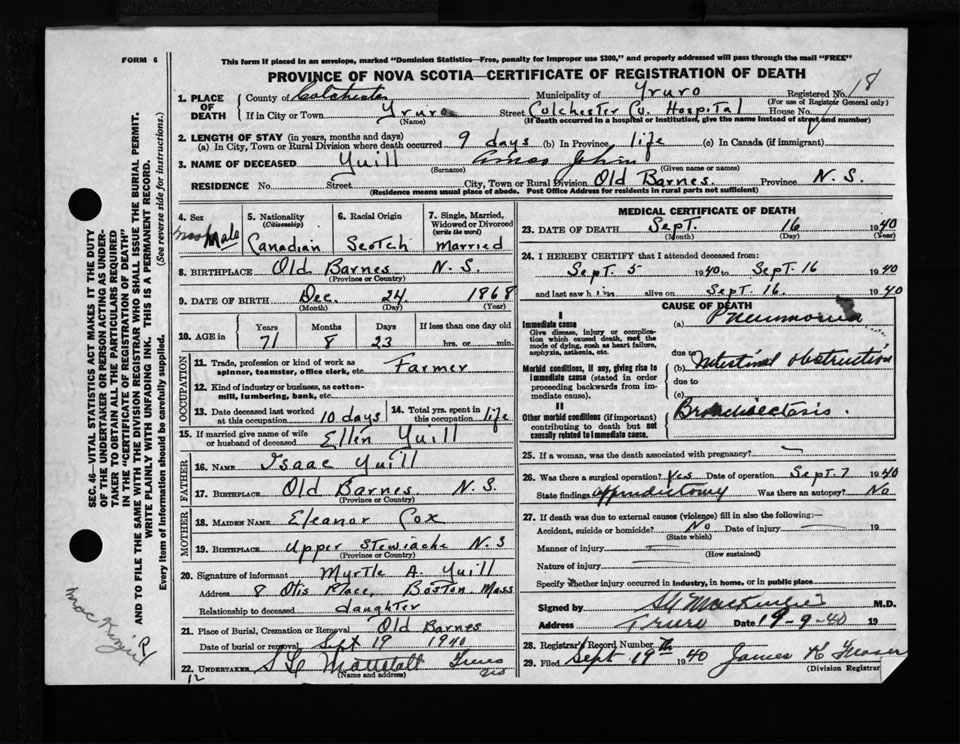 FORM 6
This form if placed in an envelope, marked "Dominion Statistics—Free, penalty for improper use $300," and properly addressed will pass through the mail "FREE"
PROVINCE OF NOVA SCOTIA—CERTIFICATE OF REGISTRATION OF DEATH
1. PLACE OF DEATH County of Colchester Municipality of Truro Registered No. 18
(For use of Registrar General only)
If in City or Town Truro Street Colchester Co. Hospital House No.
(Name) (If death occurred in a hospital or institution, give the name instead of street and number)
2. LENGTH OF STAY (in years, months and days)
(a) In City, Town or Rural Division where death occurred 9 days (b) In Province life (c) In Canada (if immigrant)
3. NAME OF DECEASED Yuill Amos John
(Surname) (Given name or names)
RESIDENCE No. Street City, Town or Rural Division Old Barnes. Province N.S.
(Residence means usual place of abode. Post Office Address for residents in rural parts not sufficient)
SEC. 46—VITAL STATISTICS ACT MAKES IT THE DUTY
OF THE UNDERTAKER OR PERSON ACTING AS UNDER-
TAKER TO OBTAIN ALL THE PARTICULARS REQUIRED
IN THE "CERTIFICATE OF REGISTRATION OF DEATH"
AND TO FILE THE SAME WITH THE DIVISION REGISTRAR WHO SHALL ISSUE THE BURIAL PERMIT.
WRITE PLAINLY WITH UNFADING INK. THIS IS A PERMANENT RECORD.
Every item of information should be carefully supplied. (See reverse side for instructions.)
4. Sex Male
5. Nationality (Citizenship) Canadian
6. Racial Origin Scotch
7. Single, Married, Widowed or Divorced (write the word) Married
8. BIRTHPLACE Old Barnes N.S.
(Province or Country)
9. DATE OF BIRTH Dec. 24 1868
(Month) (Day) (Year)
10. AGE in Years 71 Months 8 Days 23 If less than one day old hrs. or min.
OCCUPATION
11. Trade, profession or kind of work as spinner, teamster, office clerk, etc. Farmer
12. Kind of industry or business, as cotton-mill, lumbering, bank, etc.
13. Date deceased last worked at this occupation 10 days
14. Total yrs. spent in this occupation life
15. If married give name of wife or husband of deceased Ellen Yuill
FATHER
16. NAME Isaac Yuill
17. BIRTHPLACE Old Barnes N.S.
(Province or Country)
MOTHER
18. MAIDEN NAME Eleanor Cox
19. BIRTHPLACE Upper Stewiacke N.S
(Province or Country)
20. Signature of informant Myrtle A. Yuill
Address 8 Otis Place, Boston Mass
Relationship to deceased daughter
21. Place of Burial, Cremation or Removal Old Barnes
Date of burial or removal Sept 19 1940
22. UNDERTAKER Truro NS
(Name and address)
12
MacKenzie
P
MEDICAL CERTIFICATE OF DEATH
23. DATE OF DEATH Sept. 16 1940
(Month) (Day) (Year)
24. I HEREBY CERTIFY that I attended deceased from:
Sept 5 1940 to Sept. 16 1940
and last saw him alive on Sept. 16. 1940
CAUSE OF DEATH
I
Immediate cause (a) Pneumonia
Give disease, injury or complication which caused death, not the mode of dying, such as heart failure, asphyxia, asthenia, etc.
due to
Morbid conditions, if any, giving rise to immediate cause (stated in order proceeding backwards from immediate cause). (b) Intestinal obstruction
due to
(c)
II
Other morbid conditions (if important) contributing to death but not causally related to immediate cause. Bronchiectasis.
25. If a woman, was the death associated with pregnancy?
26. Was there a surgical operation? Yes Date of operation Sept. 7 1940
State findings Appendictomy Was there an autopsy? No
27. If death was due to external causes (violence) fill in also the following:—
Accident, suicide or homicide? No Date of injury 19
(State which)
Manner of injury
(How sustained)
Nature of injury
Specify whether injury occurred in industry, in home, or in public place
Signed by MacKenzie M.D.
Address Truro Date 19-9-40 19
28. Registrar's Record Number
29. Filed Sept 19th 1940 James K Fraser
(Division Registrar)